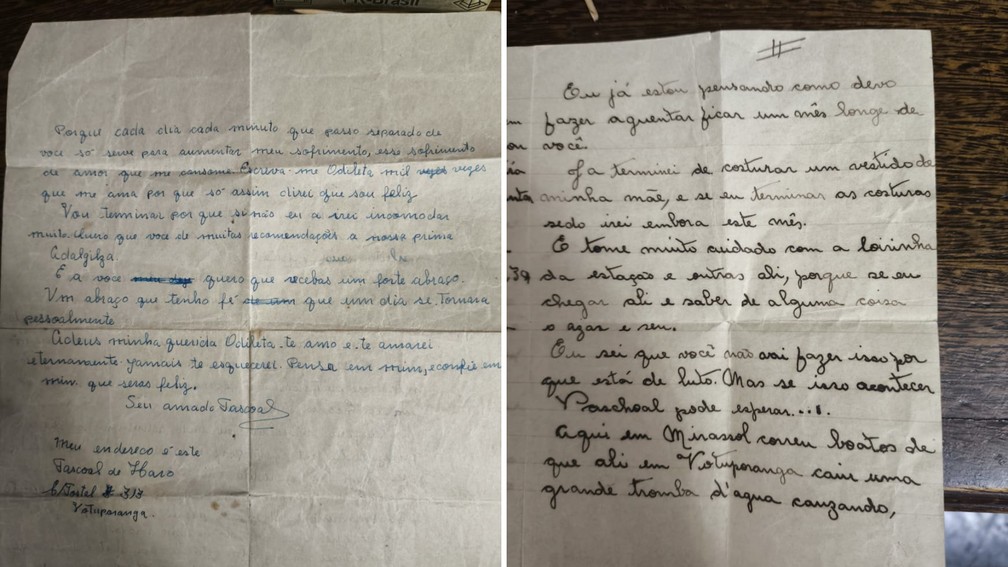 ProBrasil
Porque cada dia cada minuto que passo separado de
voce só seive para aumentar meu sofrimento, esse sofrimento
de amor que me consome Escriva-me Odileta mil vezes vezes
que me ama por que só assim direi que sou feliz
Vou terminar por que si não eu a irei incomodar
muito. Quero que voce de muitas recomendações a nossa prima
Adalgilza.
E a voce quero que recebas um forte abraço.
Um abraço que tenho fé que um dia se. Tornara
pessoalmente
Adeus minha querida Odileta. te amo e. te amarei
eternamente yamais te esquecerei. Pensa em mim, e confie em
mim que seras feliz.
Seu amado Pascoal
Meu endereco é este
Pascoal de Haro
C/Postel 313
Votuporanga.
II
Eu já estou pensando como devo
fazer aguentar ficar um mês longe de
você.
Ja terminei de costurar um vestido de
minha mãe, e se eu terminar as costuras
sedo irei embora este mês.
E tome muito cuidado com a loirinha
da estação e outras ali, porque se eu
chegar ali e saber de alguma coisa
o azar e seu.
Eu sei que você não vai fazer isso por
que está de luto. Mas se isso acontecer
Paschoal pode esperar....
Aqui em Mirassol correu boatos de
que ali em Votuporanga caiu uma
grande tromba d'agua cauzando,